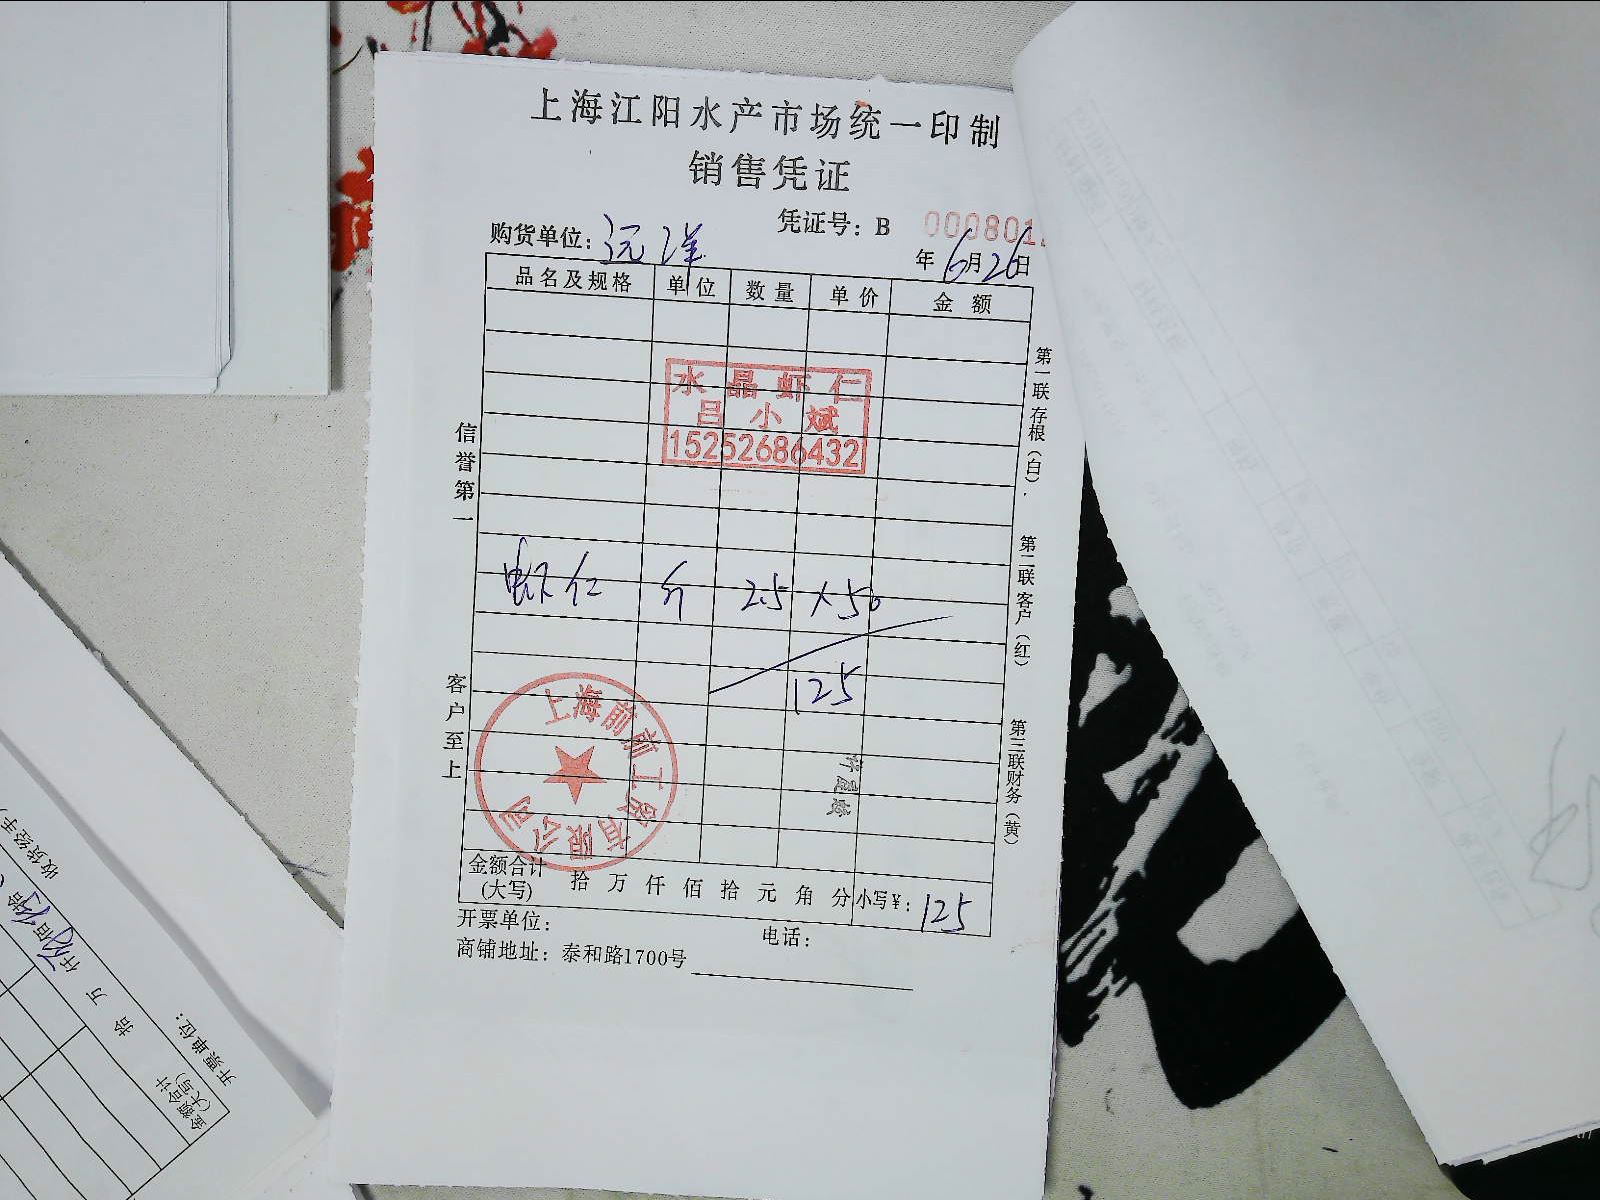 上海江阳水产市场统一印制
销售凭证
凭证号：B 000801
购货单位：远洋
年6月26日
品名及规格 单位 数量 单价 金额
水晶虾仁
吕小斌
15252686432
虾仁 斤 2.5 × 50
125
上海前前工贸有限公司
金额合计(大写) 拾 万 仟 佰 拾 元 角 分 小写¥：125
开票单位： 电话：
商铺地址：泰和路1700号
信誉第一
客户至上
第一联存根（白）
第二联客户（红）
第三联财务（黄）
收货经手
拾 万 仟 佰 拾
金额合计
(大写)
开票单位：